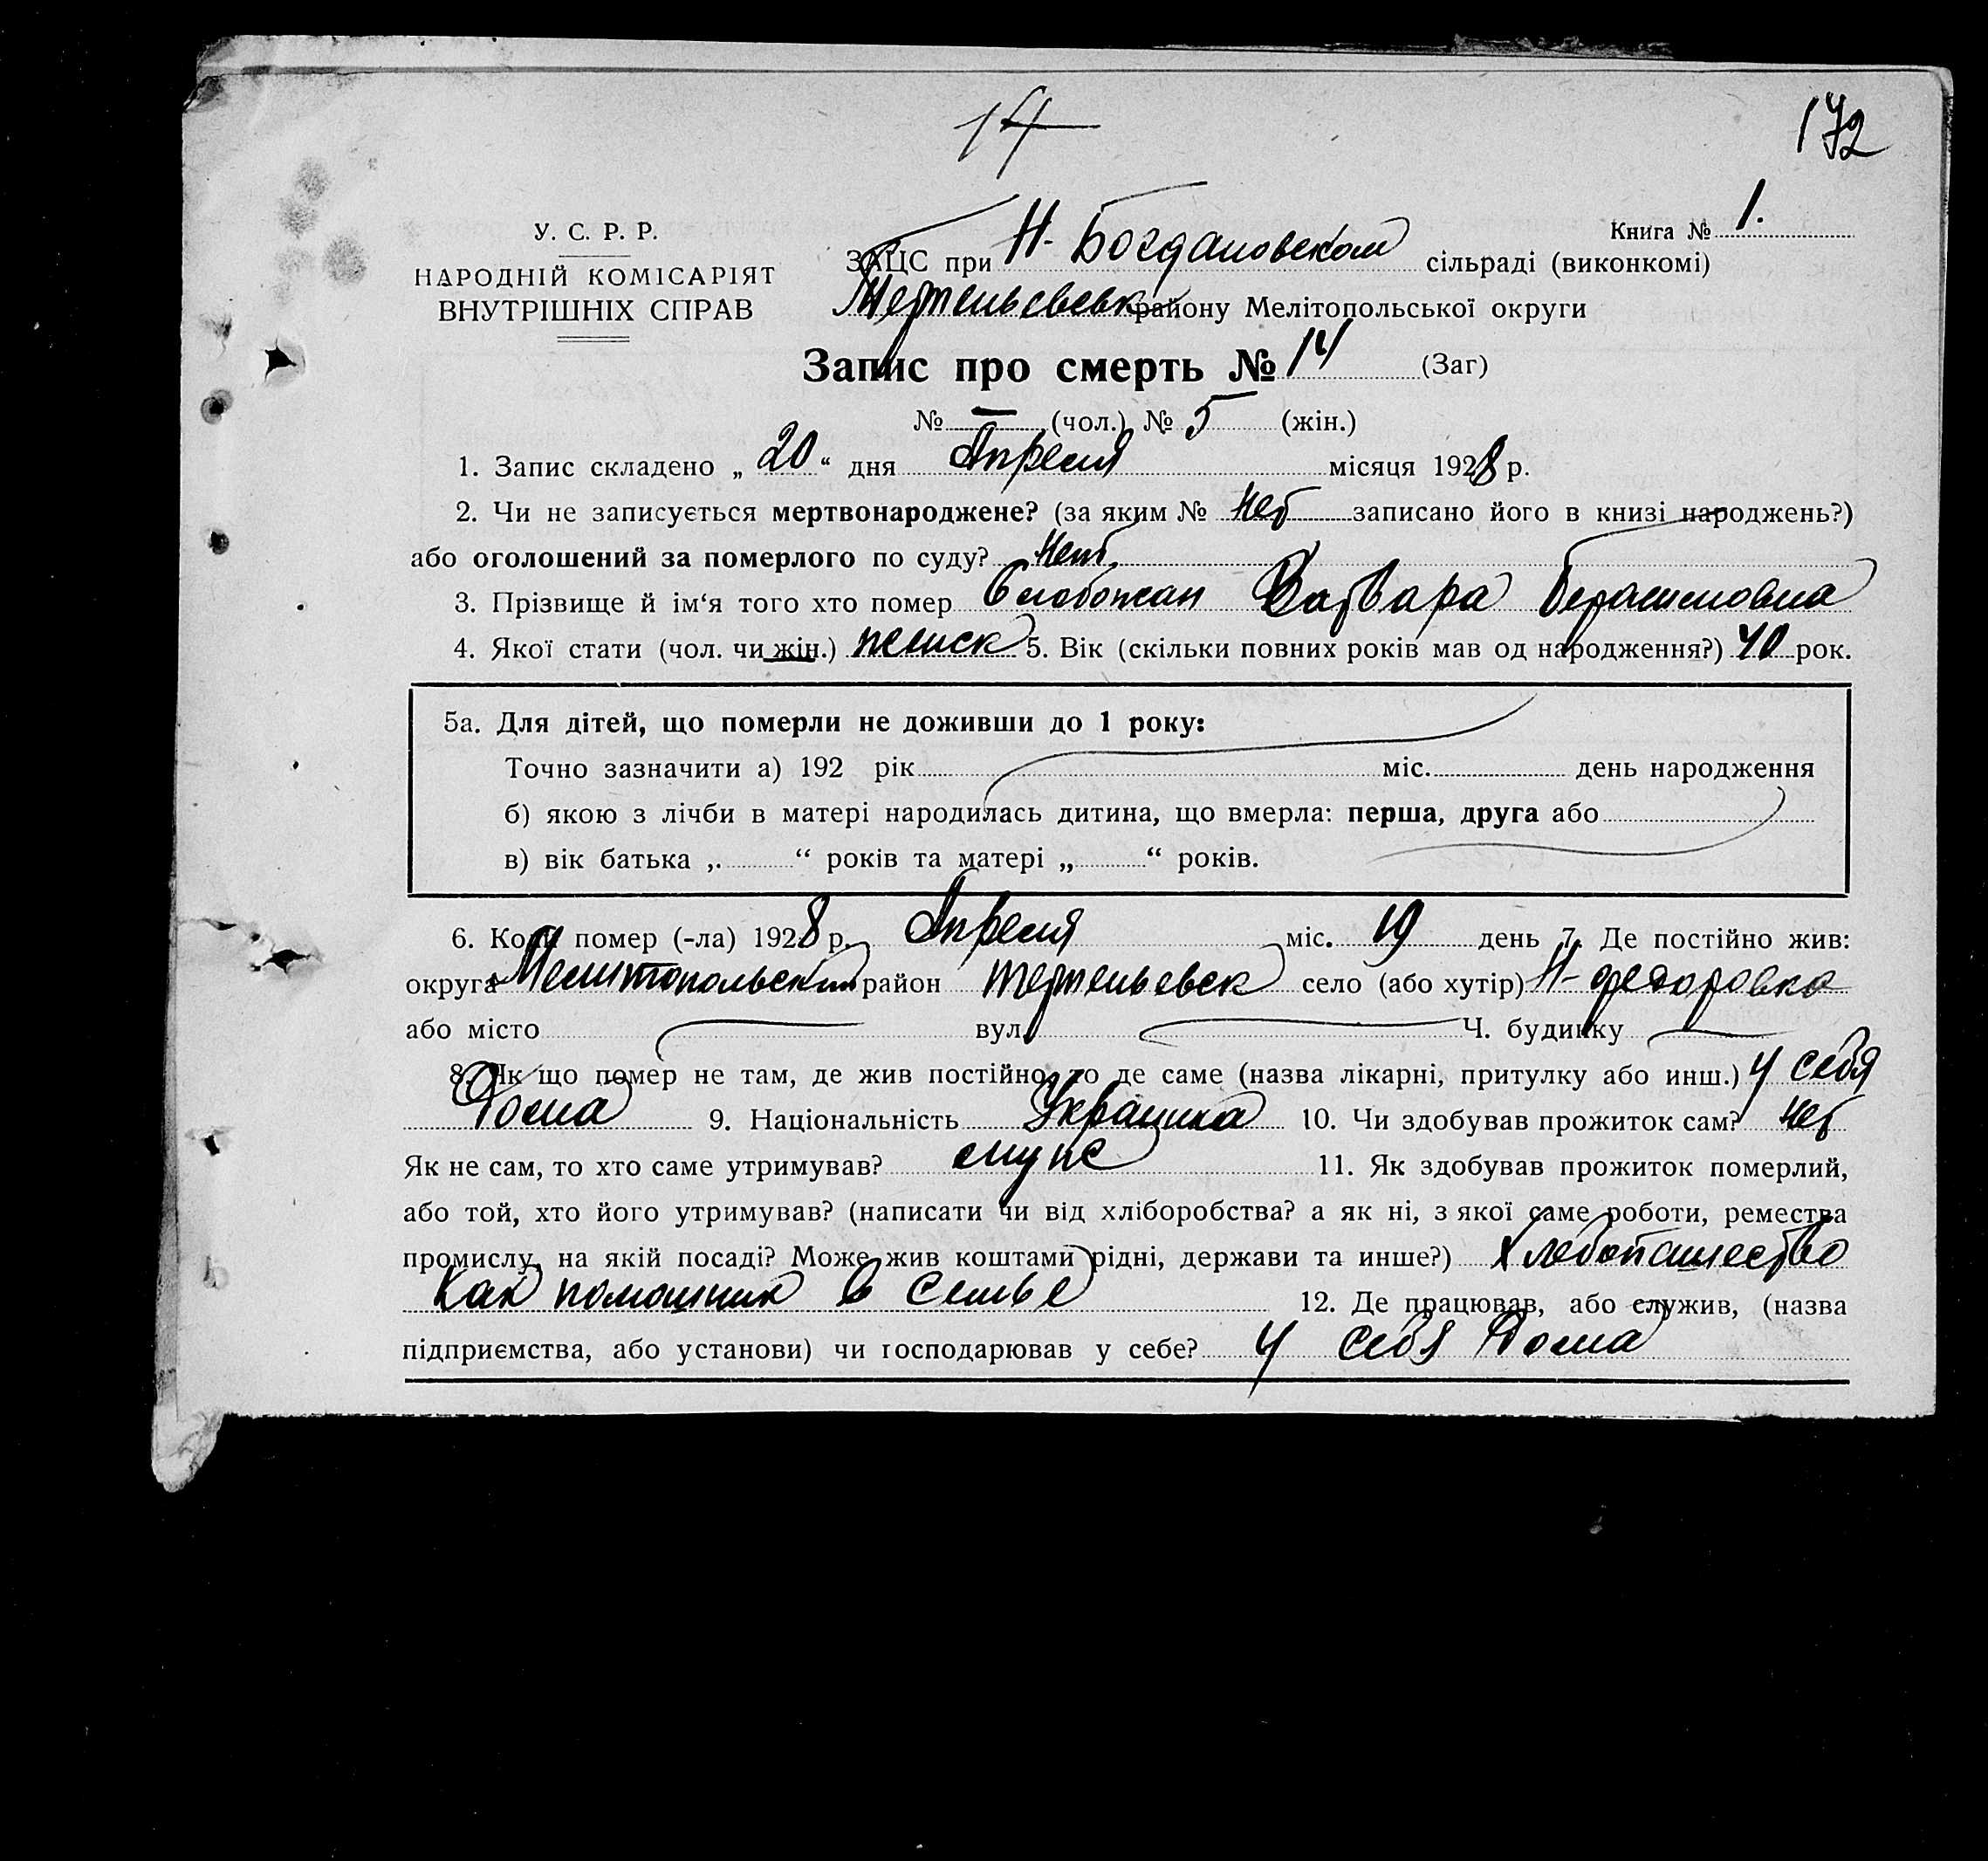 14
172
У. С. Р. Р.
НАРОДНІЙ КОМІСАРІЯТ
ВНУТРІШНІХ СПРАВ
Книга № 1.
ЗАЦС при Н-Богдановском сільраді (виконкомі)
району Мелітопольської округи
Запис про смерть № 14 (Заг)
№ — (чол.) № 5 (жін.)
1. Запис складено „ 20 “ дня Апреля місяця 1928 р.
2. Чи не записується мертвонароджене? (за яким № нет записано його в книзі народжень?)
або оголошений за померлого по суду? нет.
3. Прізвище й ім‘я того хто помер Слабожан Варвара Герасимовна
4. Якої стати (чол. чи жін.) женск 5. Вік (скільки повних років мав од народження?) 40 рок.
5а. Для дітей, що померли не доживши до 1 року:
Точно зазначити а) 192 рік міс. день народження
б) якою з лічби в матері народилась дитина, що вмерла: перша, друга або
в) вік батька „ “ років та матері „ “ років.
6. Коли помер (-ла) 1928 р. Апреля міс. 19 день 7. Де постійно жив:
округа Мелитопольский район село (або хутір) Н-Федоровка
або місто вул. Ч. будинку
8. Як що помер не там, де жив постійно, то де саме (назва лікарні, притулку або инш.) у себя
Дома 9. Національність Украинка 10. Чи здобував прожиток сам? нет
Як не сам, то хто саме утримував? муж 11. Як здобував прожиток померлий,
або той, хто його утримував? (написати чи від хліборобства? а як ні, з якої саме роботи, ремества
промислу, на якій посаді? Може жив коштами рідні, держави та инше?) Хлебопашество
как помошник в семье 12. Де працював, або служив, (назва
підприємства, або установи) чи господарював у себе? у себя Дома